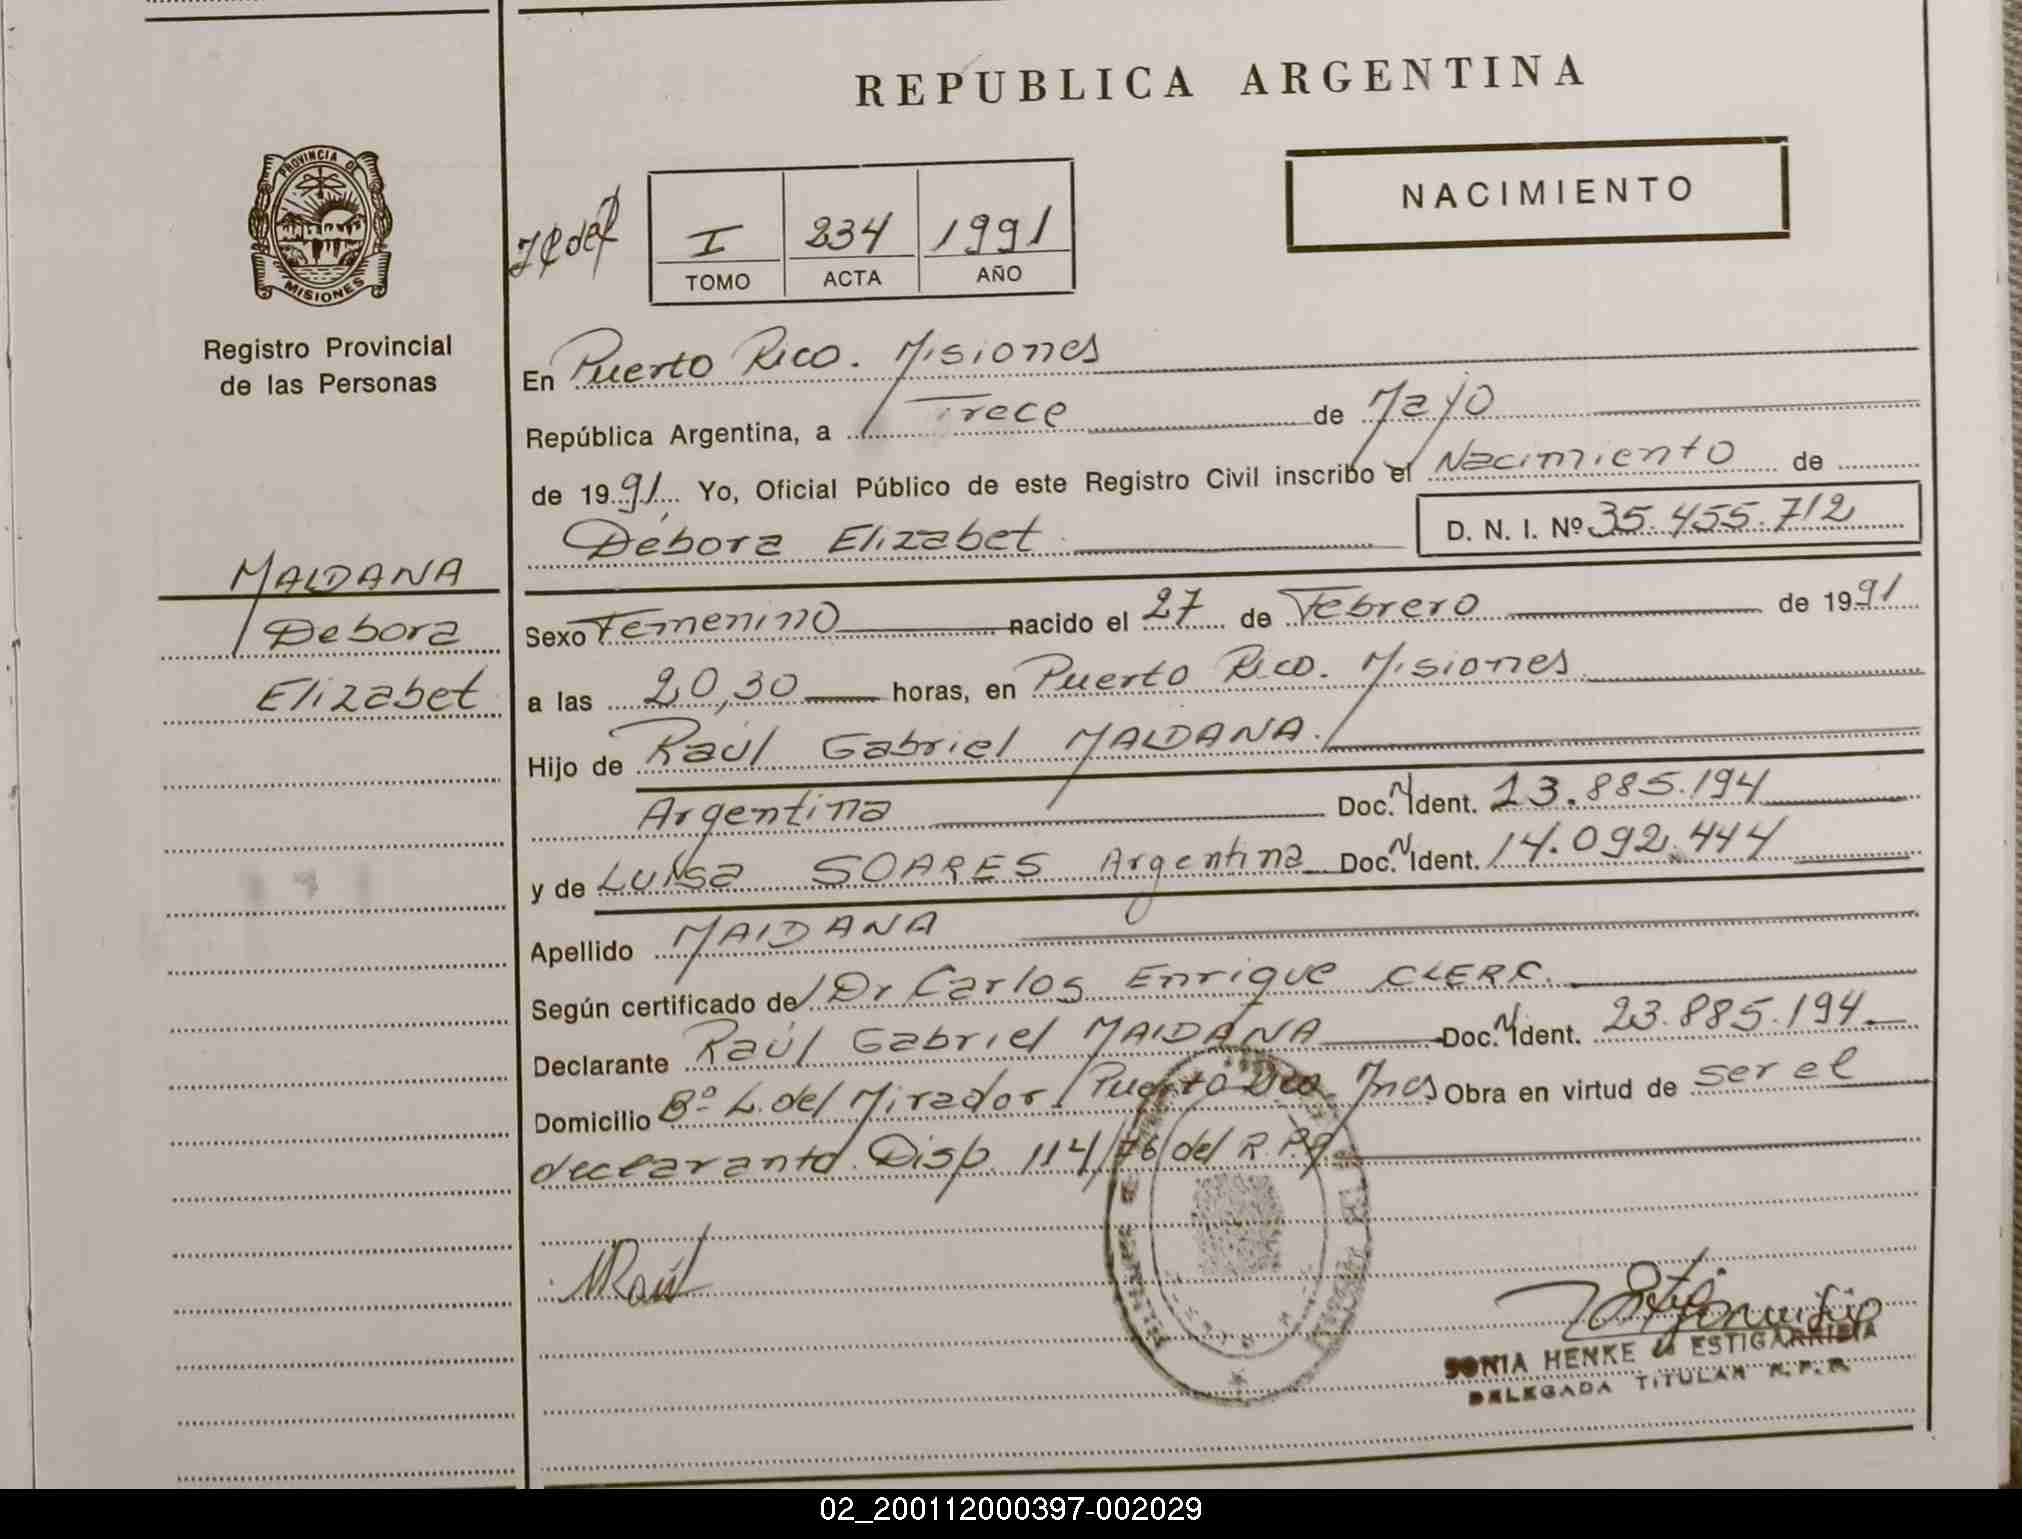 REPUBLICA ARGENTINA
NACIMIENTO
PROVINCIA DE
MISIONES
Registro Provincial
de las Personas
I 234 1991
TOMO ACTA AÑO
En Puerto Rico. Misiones
República Argentina, a Trece de Mayo
de 1991 Yo, Oficial Público de este Registro Civil inscribo el Nacimiento de
Débora Elizabet D. N. I. Nº 35.455.712
MALDANA
Debora
Elizabet
Sexo Femenino nacido el 27 de Febrero de 1991
a las 20,30 horas, en Puerto Rico. Misiones
Hijo de Raúl Gabriel MALDANA.
Argentina Doc. N Ident. 23.885.194
y de Luisa SOARES Argentina Doc. N Ident. 14.092.444
Apellido MAIDANA
Según certificado de Dr Carlos Enrique CLERC.
Declarante Raúl Gabriel MAIDANA Doc. N Ident. 23.885.194
Domicilio Bº L. del Mirador Puerto Rico Mnes Obra en virtud de ser el
declarante. Disp. 114/76 del R.P.P.
MRaúl
SONIA HENKE de ESTIGARRIBIA
DELEGADA TITULAR R. P. P.
02_200112000397-002029